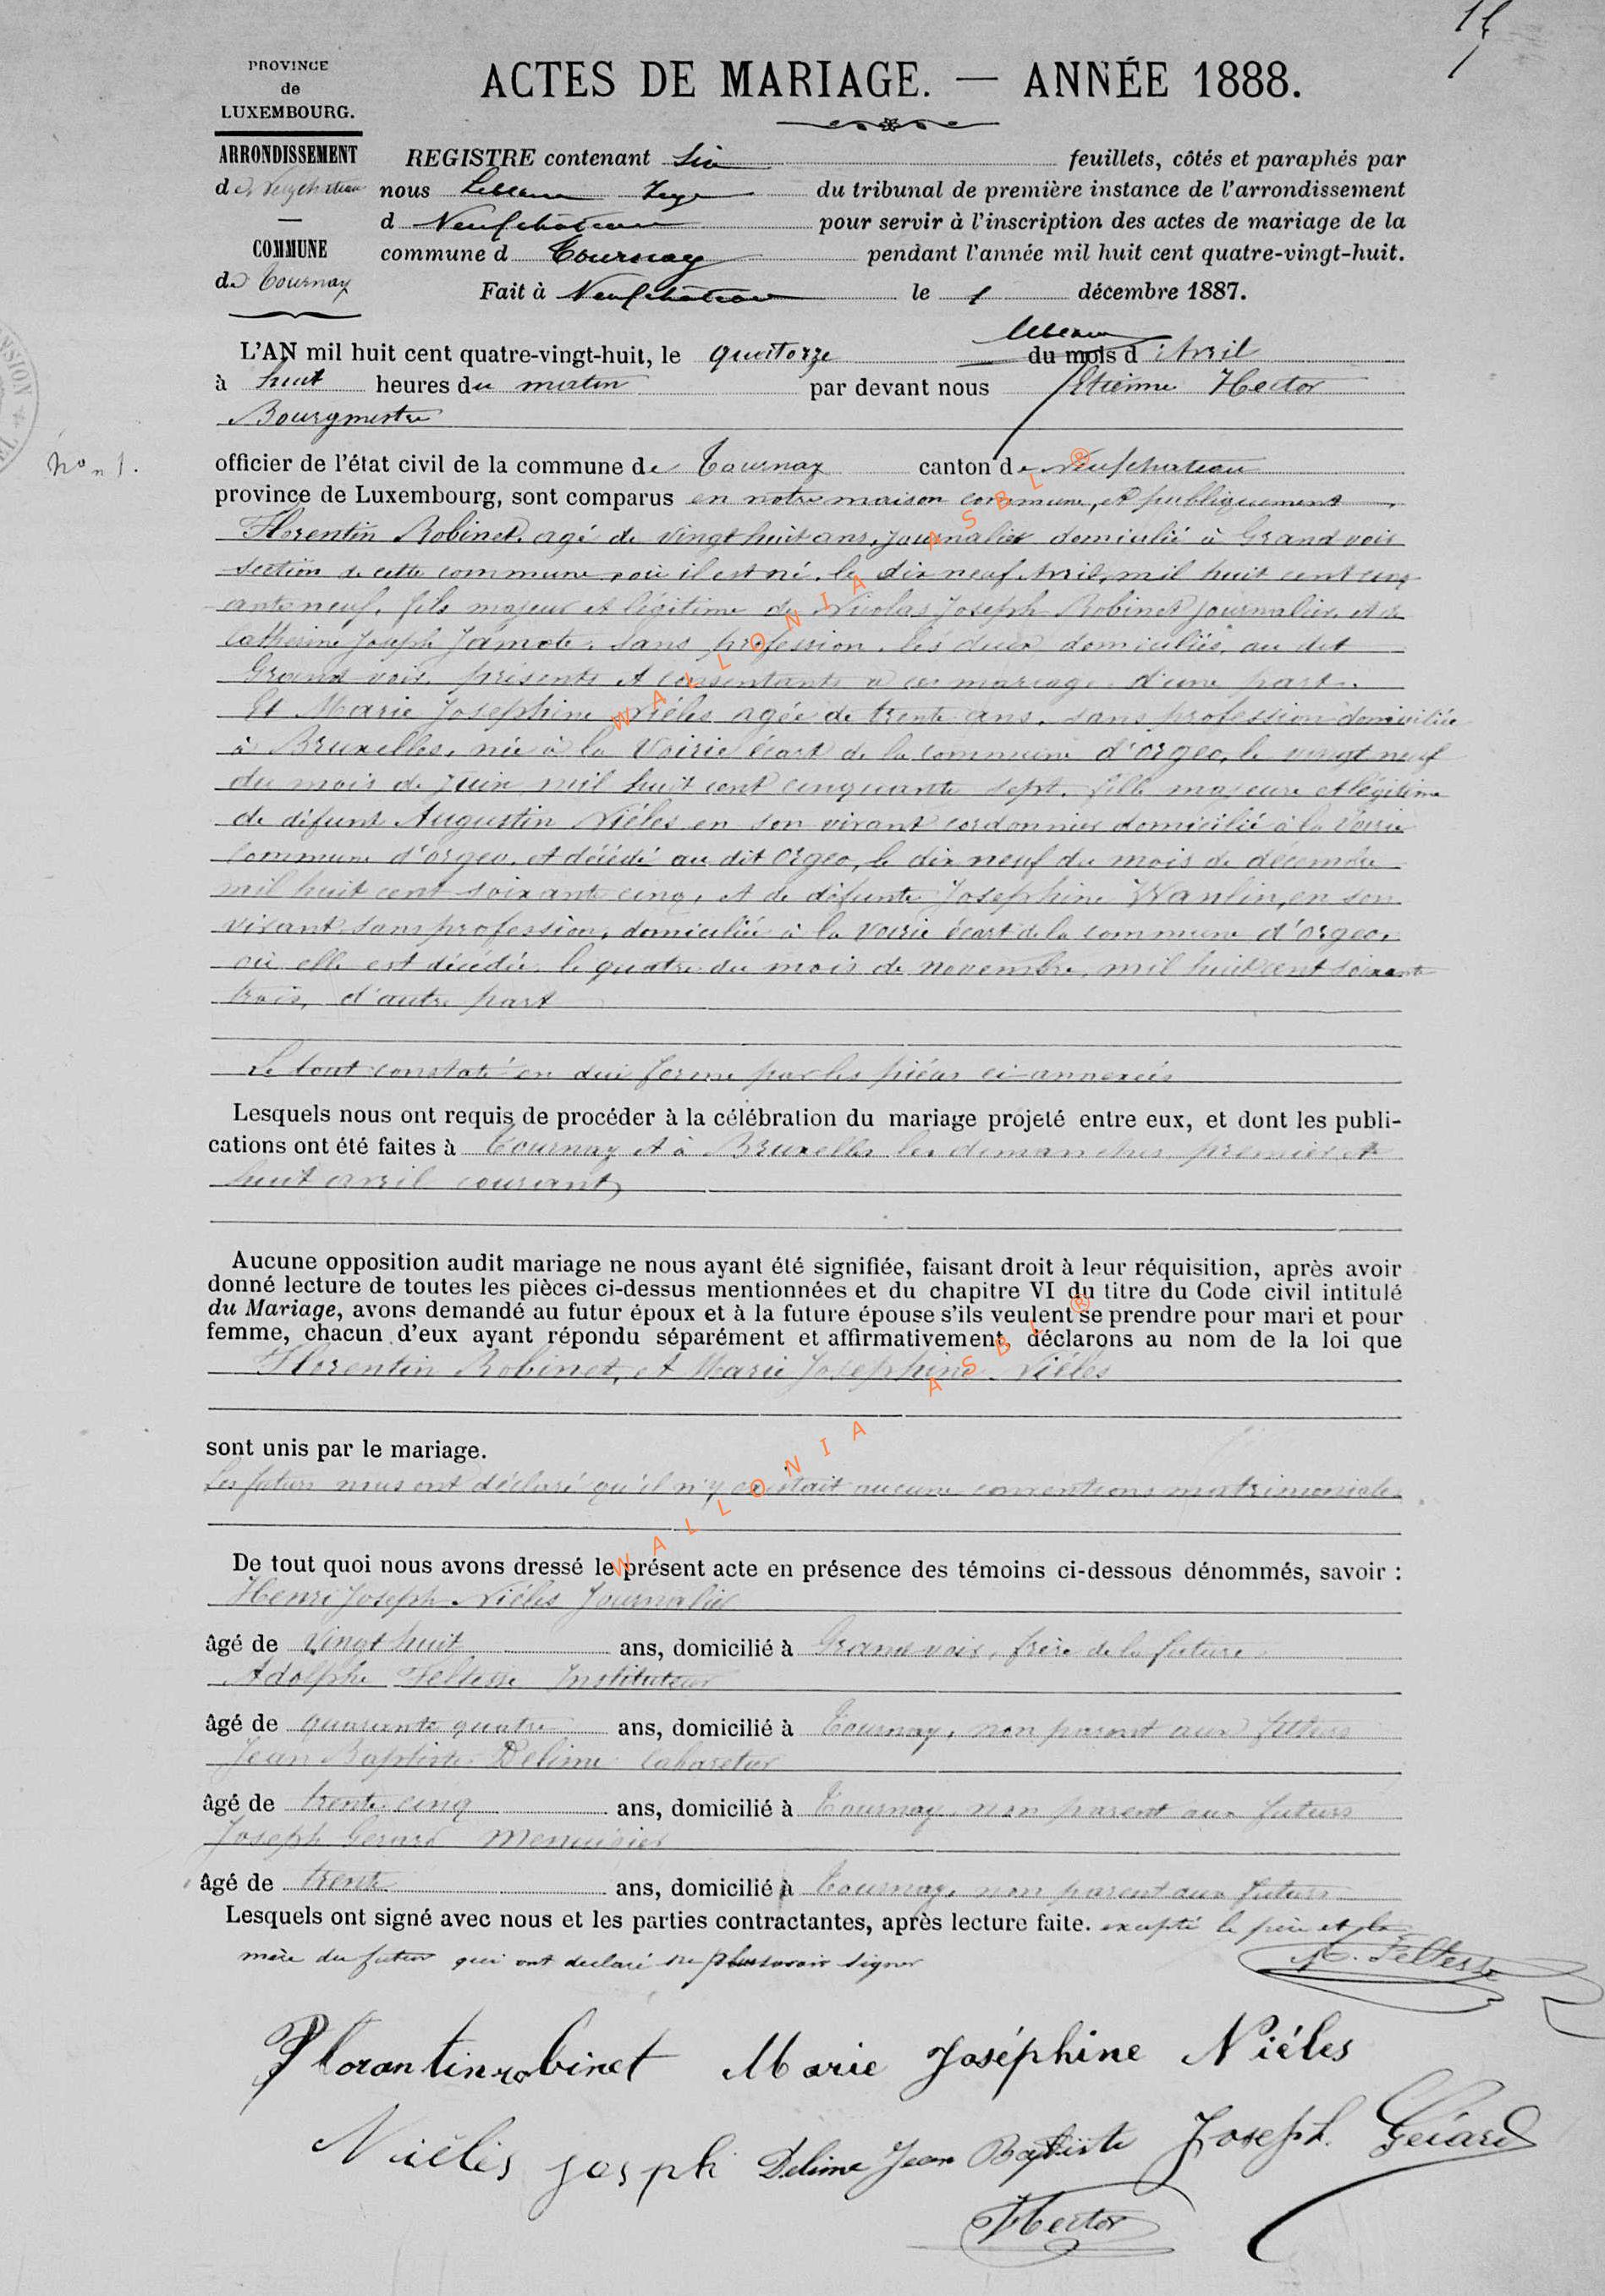 PROVINCE
de
LUXEMBOURG.
ARRONDISSEMENT
de Neufchateau
COMMUNE
de Tournay
ACTES DE MARIAGE. — ANNÉE 1888.
REGISTRE contenant Six feuillets, côtés et paraphés par
nous Lebeau Juge du tribunal de première instance de l'arrondissement
d Neufchâteau pour servir à l'inscription des actes de mariage de la
commune d Tournay pendant l'année mil huit cent quatre-vingt-huit.
Fait à Neufchâteau le 1 décembre 1887.
Lebeau
L'AN mil huit cent quatre-vingt-huit, le quatorze du mois d'Avril
à huit heures du matin par devant nous Etienne Hector
Bourgmestre
No 1.
officier de l'état civil de la commune de Tournay canton de Neufchateau
province de Luxembourg, sont comparus en notre maison commune, et publiquement
Florentin Robinet, agé de vingt huit ans, journalier domicilié à Grandvoir
section de cette commune, où il est né, le dix neuf Avril, mil huit cent cinq
ante neuf, fils majeur et légitime de Nicolas Joseph Robinet journalier, et de
Catherine Joseph Jamote, sans profession, les deux domiciliés, au dit
Grand voir, présents et consentants à ce mariage d'une part.
Et Marie Josephine Niéles agée de trente ans, sans profession domiciliée
à Bruxelles, née à la Voirie écart de la commune d'orgeo, le vingt neuf
du mois de Juin mil huit cent cinquante sept, fille majeure et légitime
de défunt Augustin Niéles en son vivant cordonnier domicilié à la Voirie
commune d'orgeo, et décédé au dit Orgeo, le dix neuf du mois de décembre
mil huit cent soixante cinq, et de défunte Josephine Wanlin, en son
vivant sans profession, domiciliée à la Voirie écart de la commune d'orgeo,
où elle est décédée, le quatre du mois de novembre, mil huit cent soixante
trois, d'autre part
Le tout constaté en due forme par les pièces ci-annexées
Lesquels nous ont requis de procéder à la célébration du mariage projeté entre eux, et dont les publi-
cations ont été faites à Tournay et à Bruxelles les dimanches premier et
huit avril courant
Aucune opposition audit mariage ne nous ayant été signifiée, faisant droit à leur réquisition, après avoir
donné lecture de toutes les pièces ci-dessus mentionnées et du chapitre VI du titre du Code civil intitulé
du Mariage, avons demandé au futur époux et à la future épouse s'ils veulent se prendre pour mari et pour
femme, chacun d'eux ayant répondu séparément et affirmativement, déclarons au nom de la loi que
Florentin Robinet, et Marie Josephine Niéles
sont unis par le mariage.
Les futurs nous ont déclaré qu'il n'y existait aucune conventions matrimoniales
De tout quoi nous avons dressé le présent acte en présence des témoins ci-dessous dénommés, savoir :
Henri Joseph Niéles Journalier
âgé de Vingt huit ans, domicilié à Grandvoir, frère de la future
Adolphe Feltesse Instituteur
âgé de quarante quatre ans, domicilié à Tournay, non parent aux futurs
Jean Baptiste Delime Cabaretier
âgé de trente cinq ans, domicilié à Tournay, non parent aux futurs
Joseph Gerard Menuisier
âgé de trente ans, domicilié à Tournay, non parent aux futurs
Lesquels ont signé avec nous et les parties contractantes, après lecture faite. excepté le père et la
mère du futur qui ont déclaré ne savoir signer
A. Feltesse
Florantin robinet Marie Joséphine Niéles
Niéles joseph Delime Jean Baptiste Joseph Gérard
Hector
WALLONIA ASBL ®
WALLONIA ASBL ®